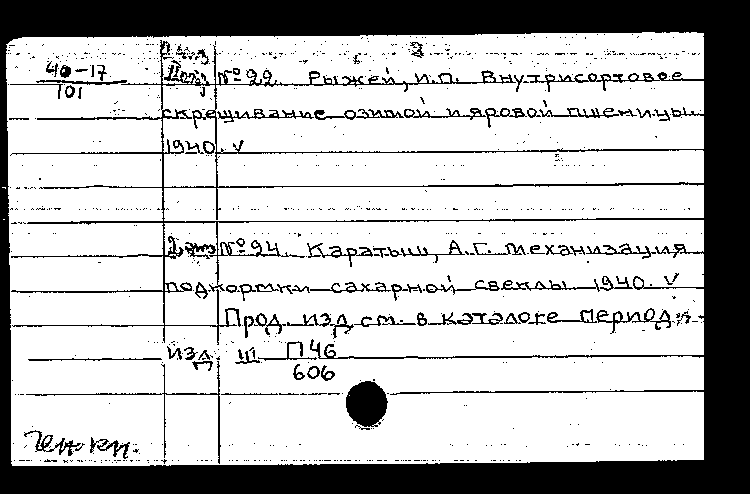 40-17
101
№ 22. Рыжей, И.П. Внутрисортовое
скрещивание озимой и яровой пшеницы.
1940. V
№ 24. Каратыш, А.Г. Механизация
подкормки сахарной свеклы 1940. V
Прод. изд см. в каталоге период.
изд. Ш П46
606